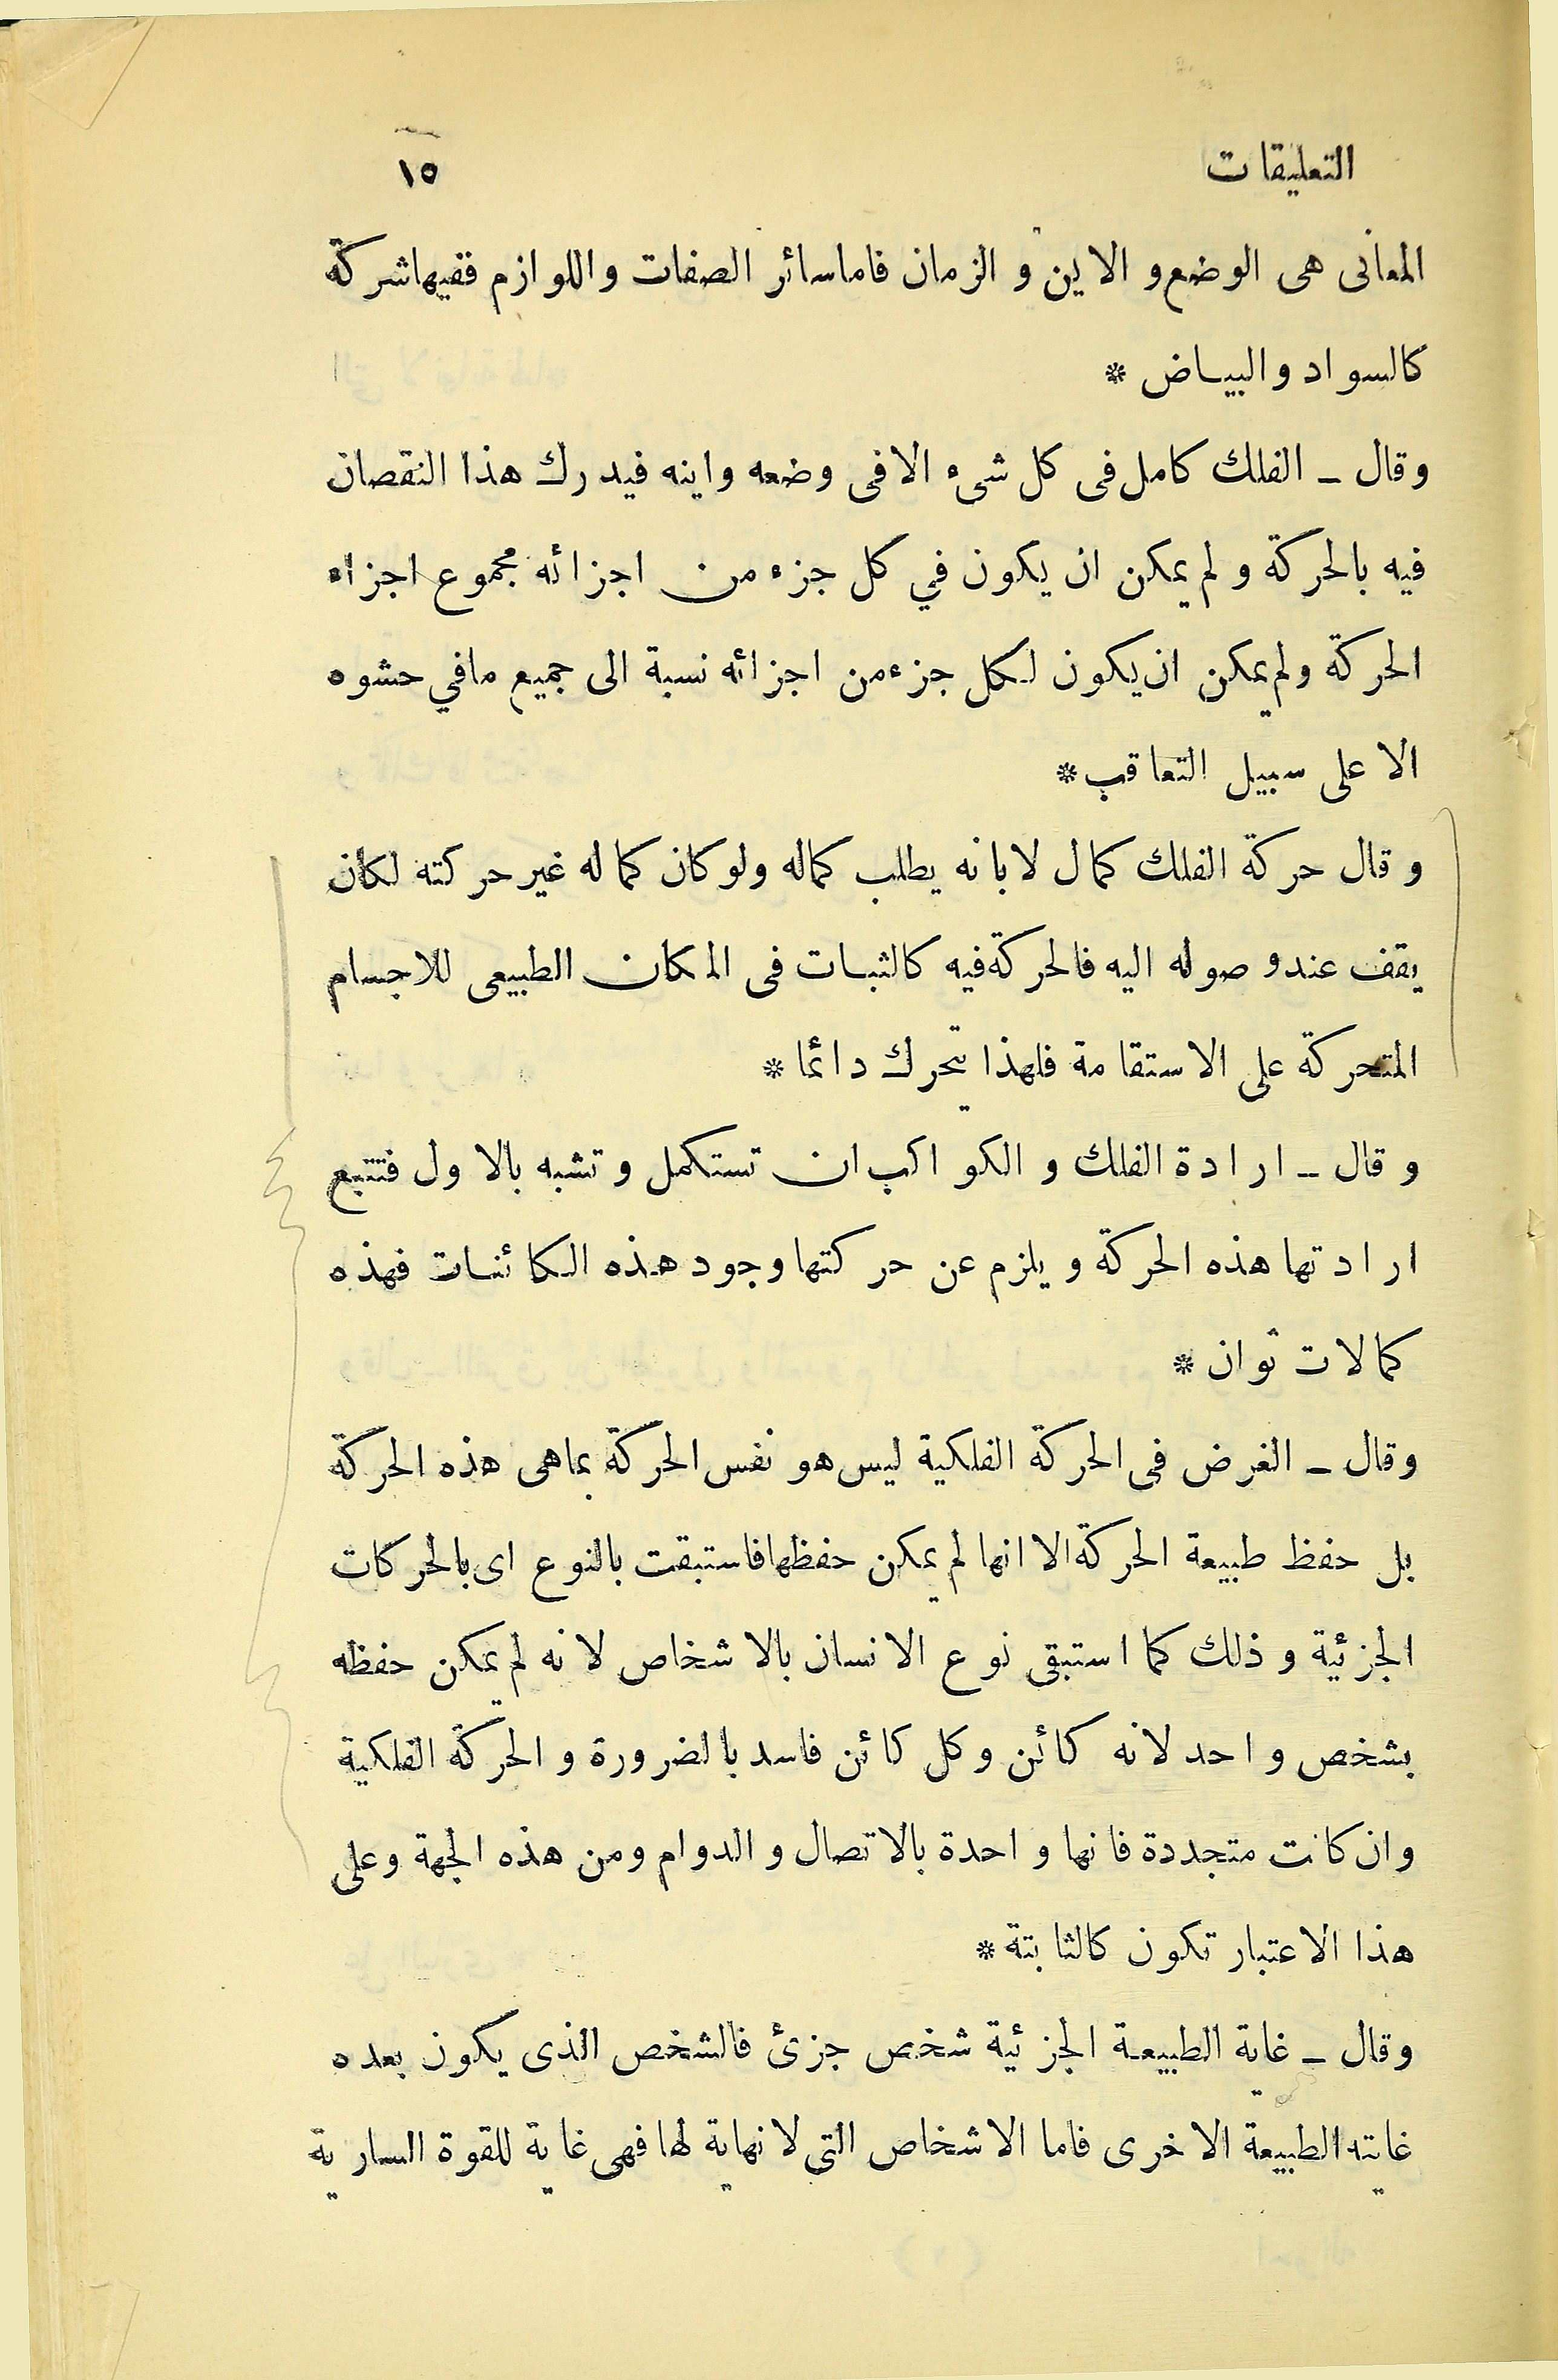 التعليقات ١٥
المعانى هى الوضع و الاين و الزمان فاما سائر الصفات و اللوازم ففيها شركة
كالسواد والبياض *
وقال ــ الفلك كامل فى كل شىء الا فى وضعه واينه فيدرك هذا النقصان
فيه بالحركة و لم يمكن ان يكون في كل جزء من اجزائه مجموع اجزاء
الحركة ولم يمكن ان يكون لكل جزء من اجزائه نسبة الى جميع مافي حشوه
الا على سبيل التعاقب *
وقال حركة الفلك كمال لا بانه يطلب كماله ولو كان كماله غير حركته لكان
يقف عند وصوله اليه فالحركة فيه كالثبات فى المكان الطبيعى للاجسام
المتحركة على الاستقامة فلهذا يتحرك دائما *
وقال ــ ارادة الفلك و الكواكب ان تستكمل و تشبه بالاول فتتبع
ارادتها هذه الحركة و يلزم عن حركتها وجود هذه الكائنات فهذه
كمالات ثوان *
وقال ــ الغرض فى الحركة الفلكية ليس هو نفس الحركة بما هى هذه الحركة
بل حفظ طبيعة الحركة الا انها لم يمكن حفظها فاستبقت بالنوع اى بالحركات
الجزئية و ذلك كما استبقى نوع الانسان بالاشخاص لانه لم يمكن حفظه
بشخص واحد لانه كائن وكل كائن فاسد بالضرورة و الحركة الفلكية
وان كانت متجددة فانها واحدة بالاتصال و الدوام ومن هذه الجهة وعلى
هذا الاعتبار تكون كالثابتة *
وقال ــ غاية الطبيعة الجزئية شخص جزئ فالشخص الذى يكون بعده
غايته الطبيعة الاخرى فاما الاشخاص التى لا نهاية لها فهى غاية للقوة السارية